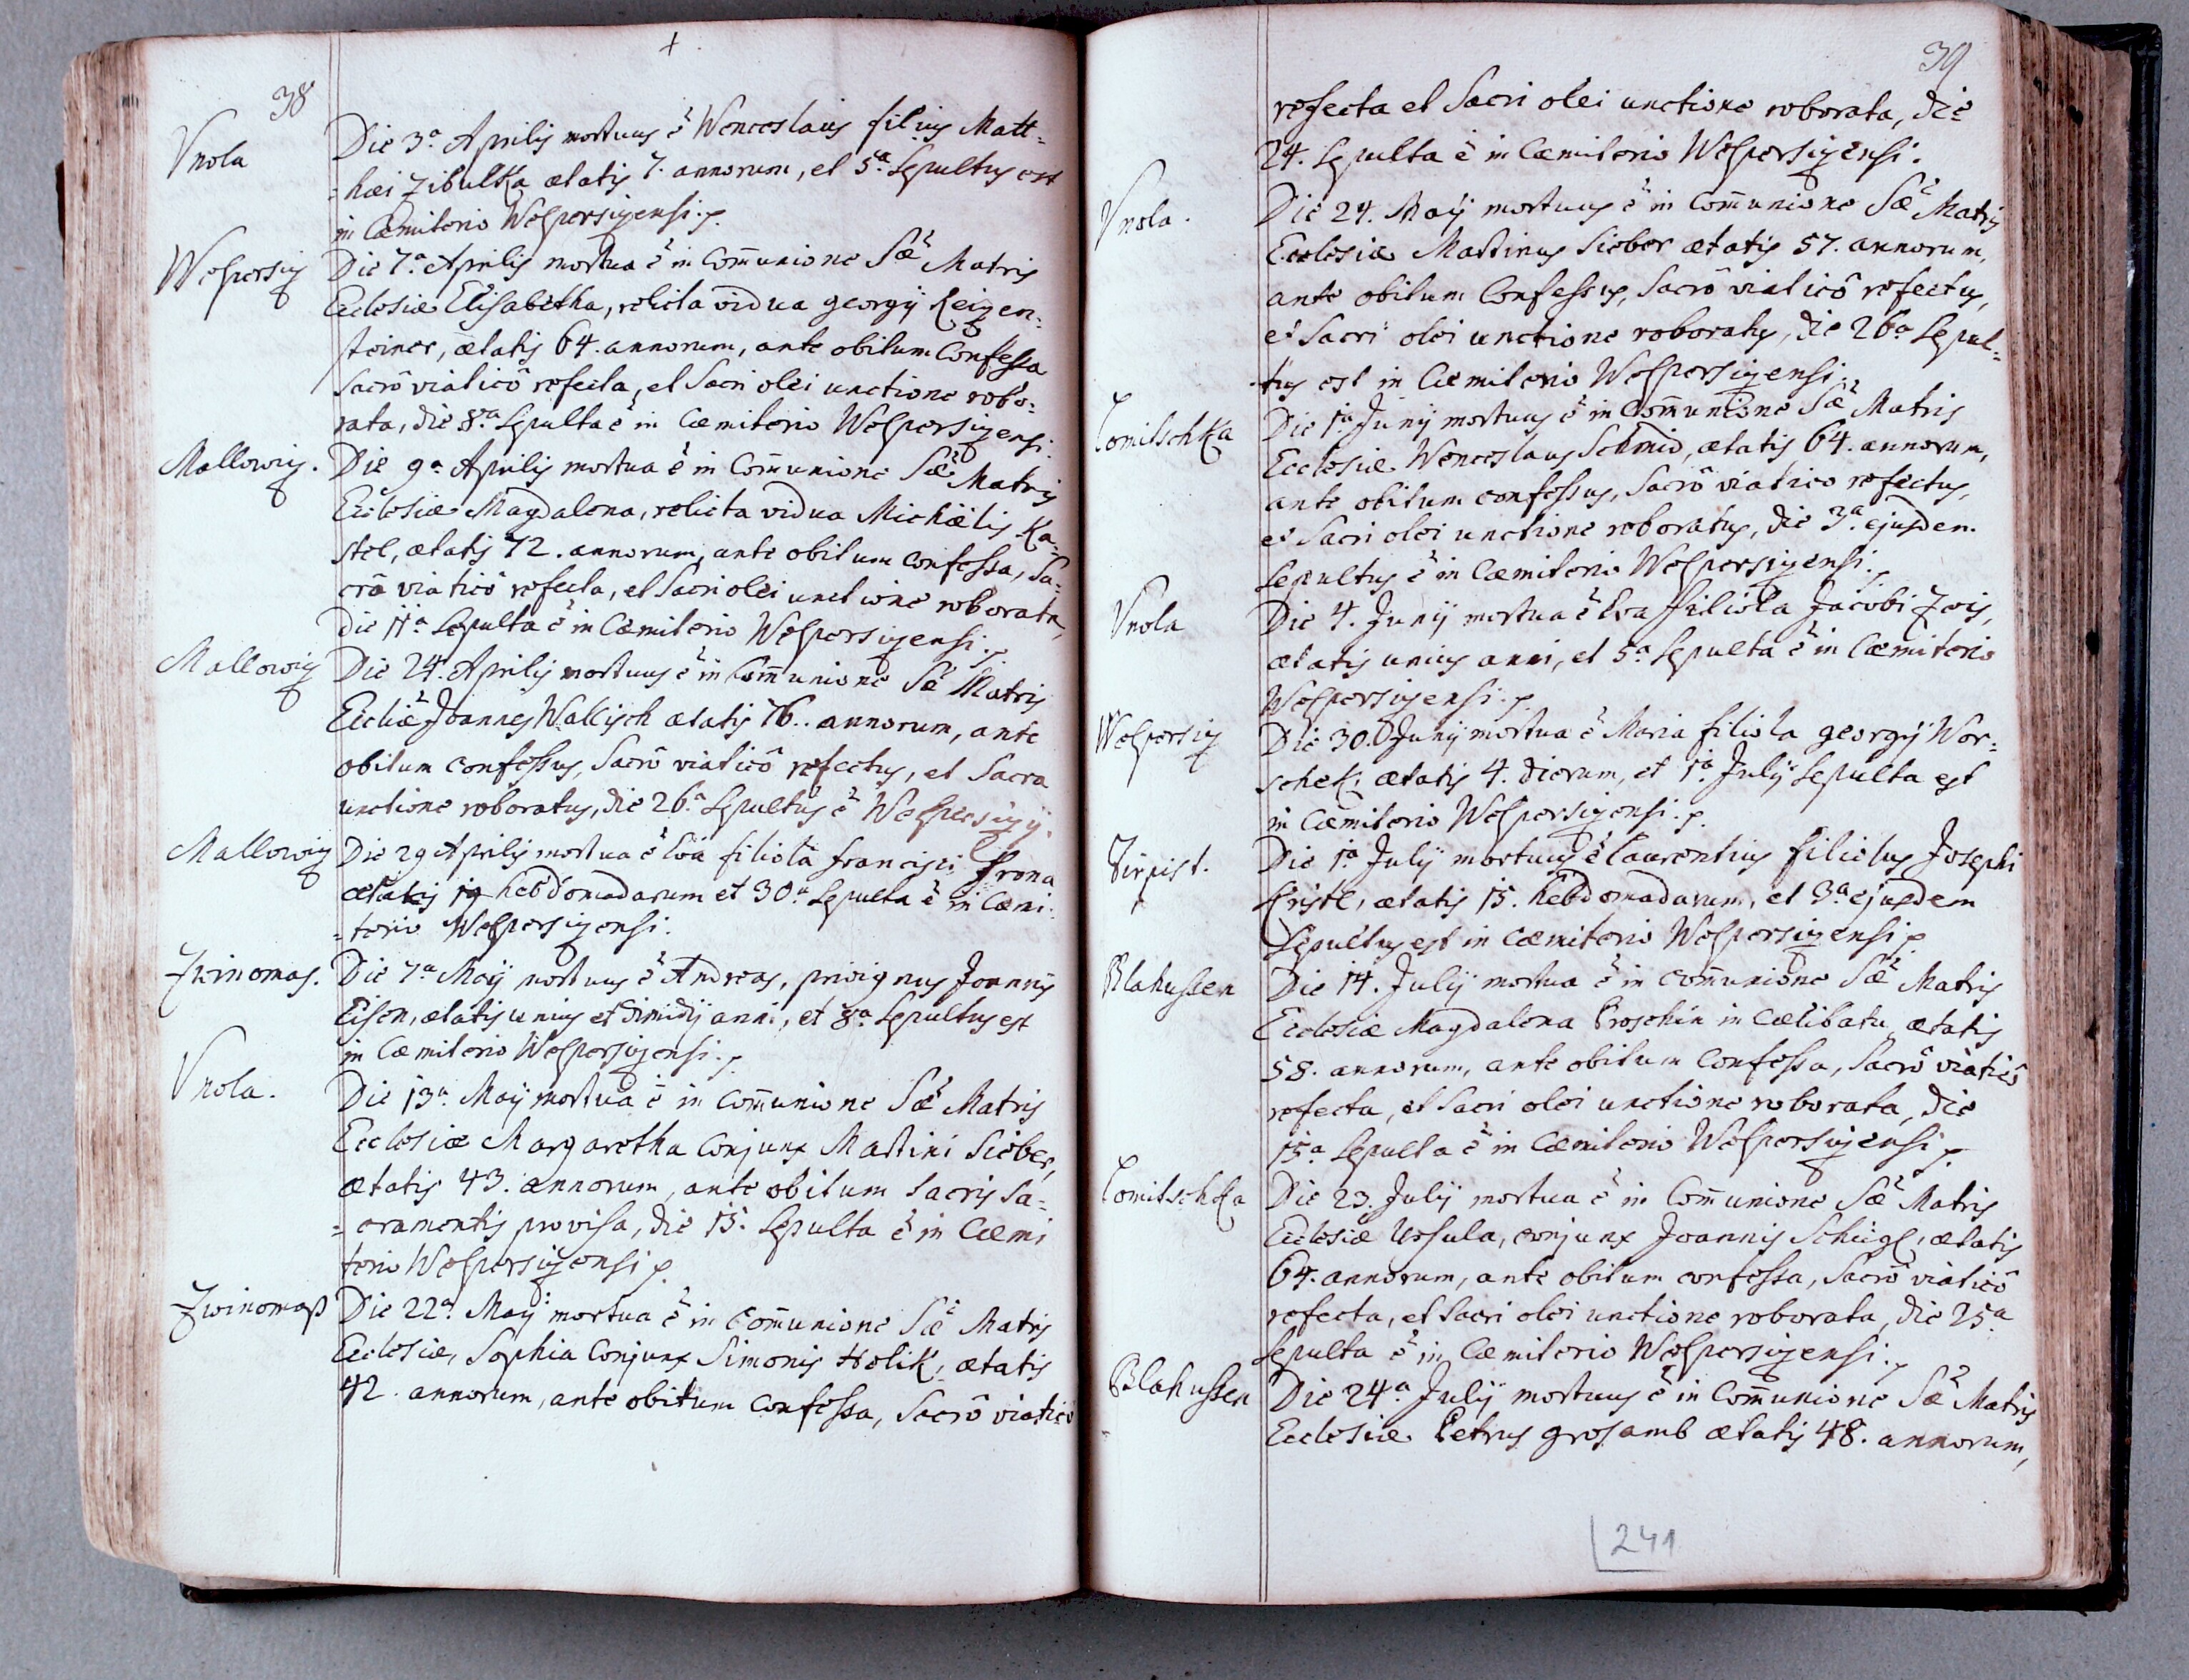 +
38
Vnola
Die 3ª Aprilis mortuus ẽ Wenceslaus filius Matt-
-hæi Zibulka ætatis 7. annorum, et 5ª Sepultus est
in Cœmiterio Welpersizensi.
Welpersiz
Die 7ª Aprilis mortua ẽ in Com̃unione Sæ Matris
Ecclesiæ Elisabetha, relicta vidua georgij Reigen-
steiner, ætatis 64. annorum, ante obitum Confessa
Sacrô viaticô refecta, et Sacri olei unctione robo-
rata, die 8ª Sepulta ẽ in Cœmiterio Welpersizensi.
Mallowiz.
Die 9ª Aprilis mortua ẽ in Com̃unione Sæ Matris
Ecclesiæ Magdalena, relicta vidua Michaëlis Ka-
stel, ætatis 72. annorum, ante obitum confessa, Sa-
crô viaticô refecta, et Sacri olei unctione roborata,
die 11ª Sepulta ẽ in Cœmiterio Welpersizensi.
Mallowiz
Die 24. Aprilis mortuus ẽ in Com̃unione Sæ Matris
Eccliæ Joannes Wallisch ætatis 76. annorum, ante
obitum confessus, Sacrô viaticô refectus, et Sacra
unctione roboratus, die 26ª Sepultus ẽ Welpersizij.
Mallowiz
Die 29 Aprilis mortua ẽ Eva filiola francisci Frona
ætatis 19 hebdomadarum et 30ª Sepulta ẽ in Cœmi-
-terio Welpersizensi.
Zwinomas.
Die 7ª Maij mortuus ẽ Andreas, privignus Joannis
Eisen, ætatis unius et dimidij anni, et 8ª Sepultus est
in Cœmiterio Welpersizensi.
Vnola.
Die 13ª Maij mortua ẽ in Com̃unione Sæ Matris
Ecclesiæ Margaretha Conjunx Martini Sieber,
ætatis 43. annorum, ante obitum Sacris Sa-
-cramentis provisa, die 15. Sepulta ẽ in Cœmi
terio Welpersizensi
Zwinomaß
Die 22ª Maij mortua ẽ in Com̃unione Sæ Matris
Ecclesiæ, Sophia Conjunx Simonis Holik, ætatis
42. annorum, ante obitum Confessa, Sacrô viaticô
39
refecta et Sacri olei unctione roborata, die
24. Sepulta ẽ in Cœmiterio Welpersizensi.
Vnola.
Die 24. Maij mortuus ẽ in Com̃unione Sæ Matris
Ecclesiæ Martinus Sieber ætatis 57. annorum,
ante obitum Confessus, Sacrô viaticô refectus,
et Sacri olei unctione roboratus, die 26ª Sepul-
-tus est in Cœmiterio Welpersizensi.
Lomitschka
Die 1ª Junij mortuus ẽ in Com̃unione Sæ Matris
Ecclesiæ Wenceslaus Schmid, ætatis 64. annorum,
ante obitum confessus, Sacrô viatico refectus,
et Sacri olei unctione roboratus, die 3ª ejusdem
Sepultus ẽ in Cœmiterio Welpersizensi.
Vnola
Die 4. Junij mortua ẽ Eva filiola Jacobi Zois,
ætatis unius anni, et 5ª Sepulta ẽ in Cœmiterio
Welpersizensi.
Welpersiz
Die 30. Junij mortua ẽ Maria filiola georgij Wor-
schek ætatis 4. dierum, et 1ª Julij Sepulta est
in Cœmiterio Welpersizensi.
Tirpist.
Die 1ª Julij mortuus ẽ Laurentius filiolus Josephi
Kristl, ætatis 15. hebdomadarum, et 3ª ejusdem
Sepultus est in cœmiterio Welpersizensi
Blahussen
Die 14. Julij mortua ẽ in com̃unione Sæ Matris
Ecclesiæ Magdalena Proschin in Cælibatu ætatis
58. annorum, ante obitum Confessa, Sacrô viaticô
refecta, et Sacri olei unctione roborata, die
15ª Sepulta ẽ in Cœmiterio Welpersizensi
Lomitschka
Die 23. Julij mortua ẽ in Com̃unione Sæ Matris
Ecclesiæ Ursula, conjunx Joannis Schügl, ætatis
64. annorum, ante obitum confessa, Sacrô viaticô
refecta, et Sacri olei unctione roborata, die 25ª
Sepulta ẽ in Cœmiterio Welpersizensi.
Blahussen
Die 24ª Julij mortuus ẽ in Com̃unione Sæ Matris
Ecclesiæ Petrus grosamb ætatis 48. annorum,
241